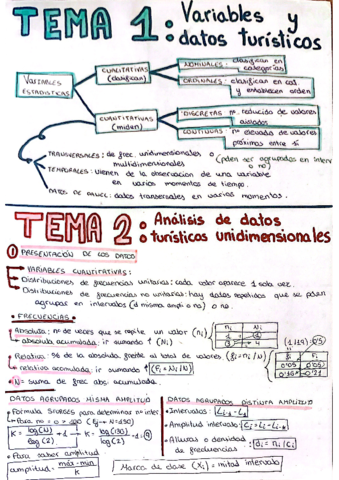 TEMA 1: Variables y
datos turísticos
VARIABLES
ESTADÍSTICAS
CUALITATIVAS
(clasifican)
NOMINALES: clasifican en
categorías
ORDINALES: clasifican en cat
y establecen orden
CUANTITATIVAS
(miden)
DISCRETAS nº reducido de valores
aislados
CONTINUAS: nº elevado de valores
próximos entre sí
TRANSVERSALES: de frec. unidimensionales o
multidimensionales
(pden ser agrupados en interv
o no)
TEMPORALES: vienen de la observación de una variable
en varios momentos de tiempo.
DATOS DE PANEL: datos transversales en varios momentos.
TEMA 2: Análisis de datos
turísticos unidimensionales
1 PRESENTACIÓN DE LOS DATOS
VARIABLES CUANTITATIVAS:
Distribuciones de frecuencias unitarias: cada valor aparece 1 sola vez.
Distribuciones de frecuencias no unitarias: hay datos repetidos que se pden
agrupar en intervalos (d misma ampli o no) o no.
FRECUENCIAS:
Absoluta: nº de veces que se repite un valor (ni)
absoluta acumulada: ir sumando ↑ (Ni)
ni Ni
Relativa: % de la absoluta frente al total de valores (fi = ni/N)
relativa acumulada: ir sumando ↑ (Fi = Ni/N)
fi Fi
0'05 0'05
N = suma de frec abs acumulada.
DATOS AGRUPADOS MISMA AMPLITUD
Fórmula Sturges para determinar nº inter
K = log(N)
log(2)
Para saber amplitud
amplitud = máx - mín
K
DATOS AGRUPADOS DISTINTA AMPLITUD
Intervalos: Li-1 - Li
Amplitud intervalo: Ci = Li - Li-1
Alturas o densidad
de frecuencias
di = ni / ci
Marca de clase (Xi) = mitad intervalo